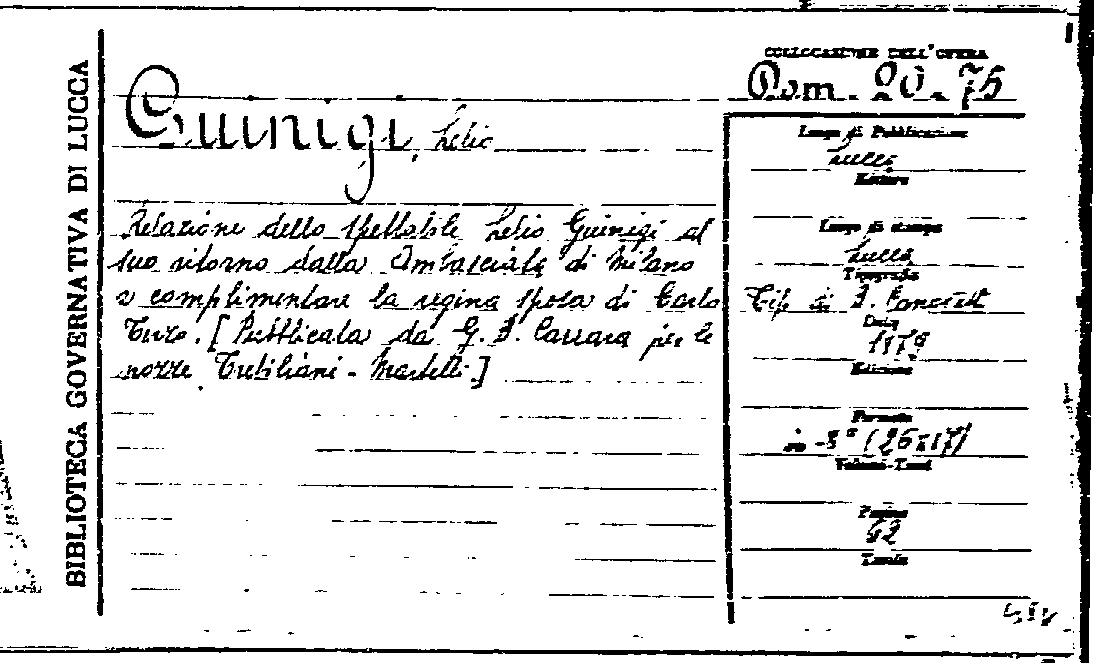 BIBLIOTECA GOVERNATIVA DI LUCCA
COLLOCAZIONE DELL'OPERA
Dom. 20. 75
Guinigi, Lelio
Relazione dello spettabile Lelio Guinigi al
suo ritorno dalla Ambasciata di Milano
a complimentare la regina sposa di Carlo
Terzo. [Pubblicata da G. B. Carrara per le
nozze - Martelli.]
Luogo di Pubblicazione
Lucca
Editore
Luogo di stampa
Lucca
Tipografia
Tip. di B.
Data
Edizione
Formato
in-8° (26x17)
Volumi-Tomi
Pagine
Tavole